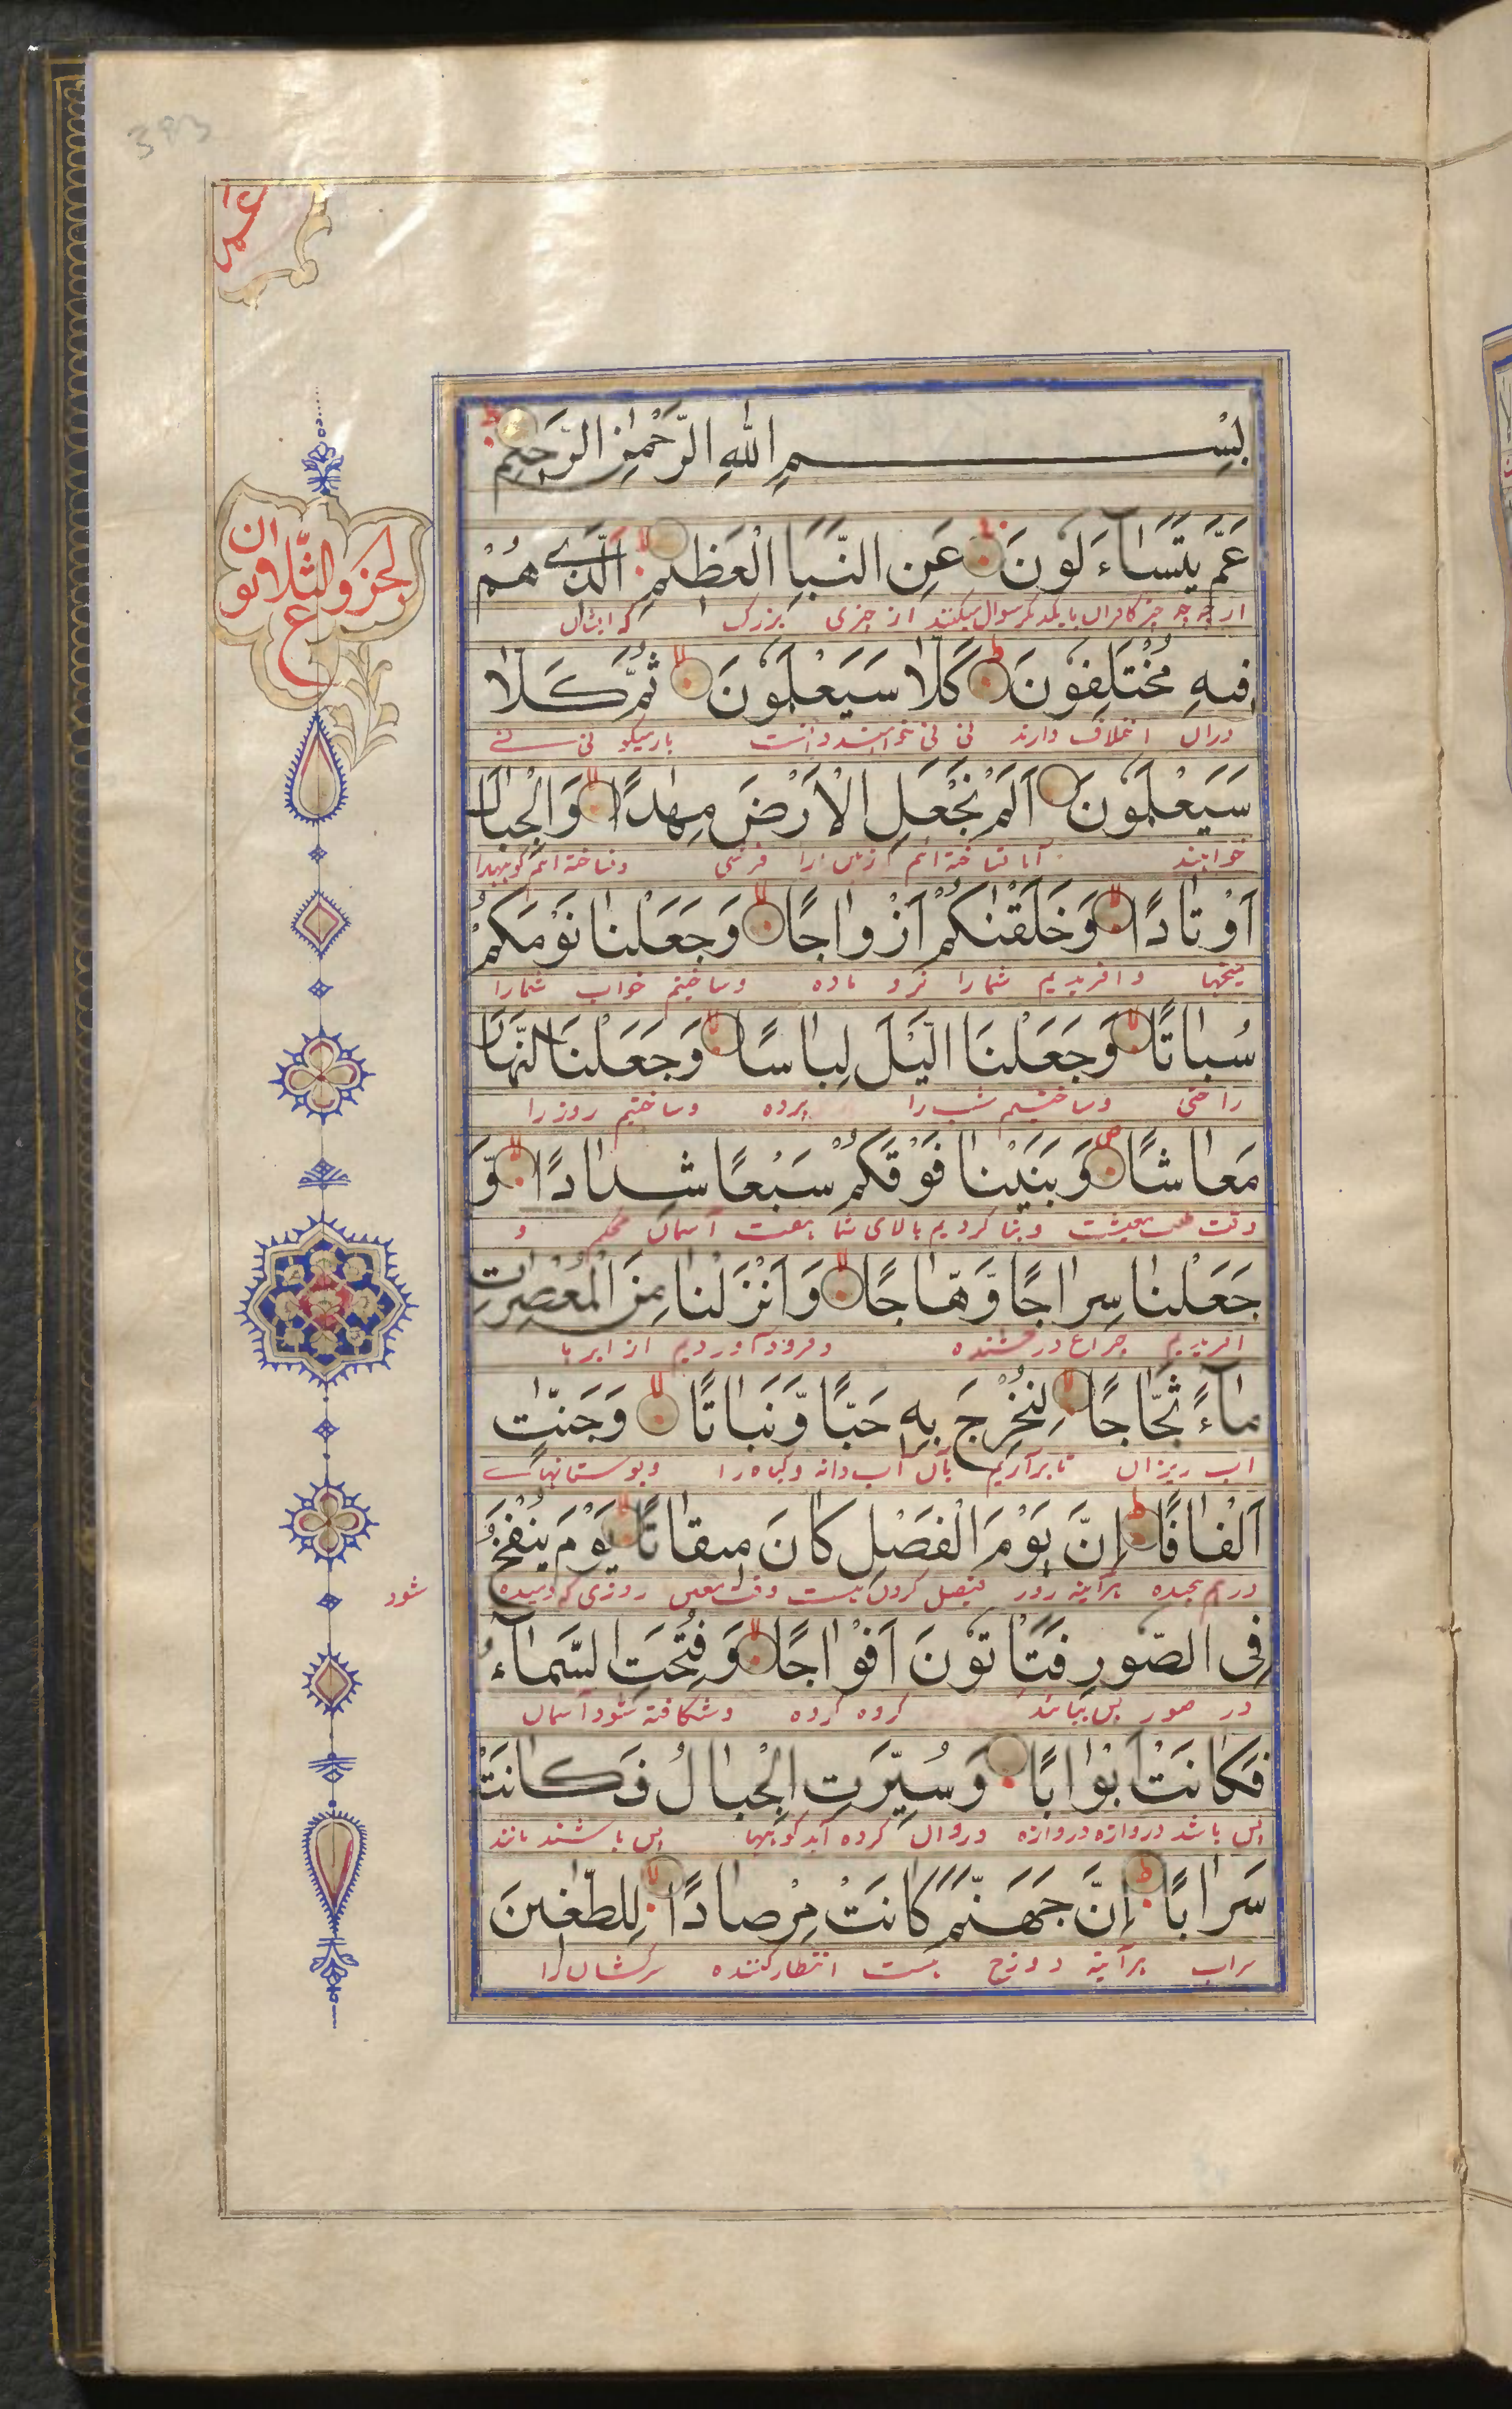 393
عم
بِسْمِ اللهِ الرَّحْمٰنِ الرَّحِيْمِ
عَمَّ يَتَسَاءَلُونَ عَنِ النَّبَإِ الْعَظِيمِ الَّذِي هُمْ
از چه چیز کافران با یکدیگر سوال میکنند از چیزی بزرگ که ایشان
فِيهِ مُخْتَلِفُونَ كَلَّا سَيَعْلَمُونَ ثُمَّ كَلَّا
دران اختلاف دارند نی نی خواهند دانست بار دیگر نی نی
سَيَعْلَمُونَ اَلَمْ نَجْعَلِ الْاَرْضَ مِهٰدًا وَالْجِبَالَ
خواهند آیا نساخته ایم زمین را فرشی و نساخته ایم کوهها را
اَوْتَادًا وَخَلَقْنٰكُمْ اَزْوَاجًا وَجَعَلْنَا نَوْمَكُمْ
میخها و افریدیم شما را نر و ماده و ساختیم خواب شما را
سُبَاتًا وَجَعَلْنَا الَّيْلَ لِبَاسًا وَجَعَلْنَا النَّهَارَ
راحتی و ساختیم شب را پرده و ساختیم روز را
مَعَاشًا وَبَنَيْنَا فَوْقَكُمْ سَبْعًا شِدَادًا وَّ
وقت طلب معیشت و بنا کردیم بالای شما هفت آسمان محکم و
جَعَلْنَا سِرَاجًا وَّهَّاجًا وَاَنْزَلْنَا مِنَ الْمُعْصِرٰتِ
افریدیم چراغ درخشنده و فرود آوردیم از ابرها
مَاءً ثَجَّاجًا لِنُخْرِجَ بِهِ حَبًّا وَّنَبَاتًا وَجَنّٰتٍ
اب ریزان تا برآریم بآن آب دانه و گیاه را و بوستانهای
اَلْفَافًا اِنَّ يَوْمَ الْفَصْلِ كَانَ مِيقَاتًا يَوْمَ يُنْفَخُ
درهم پیچیده هرآینه روز فیصل کردن هست وقت معین روزی که دمیده
شود
فِي الصُّورِ فَتَأْتُونَ اَفْوَاجًا وَفُتِحَتِ السَّمَاءُ
در صور پس بیائید گروه گروه و شگافته شود آسمان
فَكَانَتْ اَبْوَابًا وَسُيِّرَتِ الْجِبَالُ فَكَانَتْ
پس باشد دروازه دروازه و روان کرده آید کوهها پس باشند مانند
سَرَابًا اِنَّ جَهَنَّمَ كَانَتْ مِرْصَادًا لِلطّٰغِينَ
سراب هرآینه دوزخ هست انتظار کننده سرکشان را
الجزو الثلاثون
ع